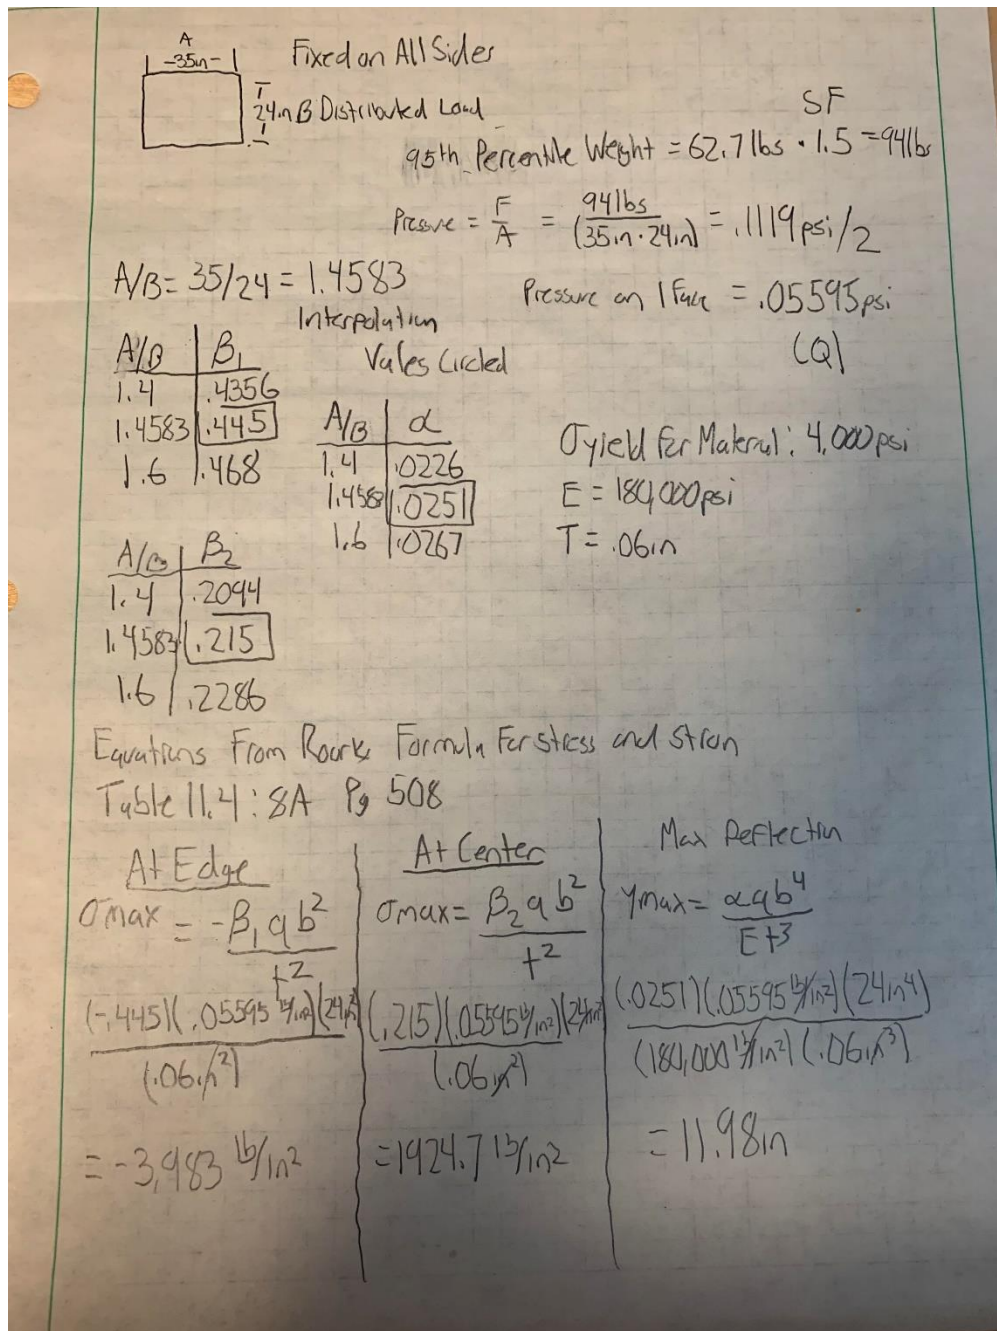 A
-35in-
Fixed on All Sides
24in B Distributed Load
SF
95th Percentile Weight = 62.7 lbs · 1.5 = 94lbs
Pressure = F/A = 94lbs/(35in·24in) = .1119psi/2
A/B = 35/24 = 1.4583
Pressure on 1 Face = .05595psi
(Q)
Interpolation
Vales Circled
A/B | β1
1.4 | .4356
1.4583 | .445
1.6 | .468
A/B | α
1.4 | .0226
1.4583 | .0251
1.6 | .0267
σyield for Material: 4,000psi
E = 180,000psi
T = .06in
A/B | β2
1.4 | .2094
1.4583 | .215
1.6 | .2286
Equations From Roarks Formula For stress and Strain
Table 11.4: 8A Pg 508
At Edge
σmax = -β1qb²/t²
(-.445)(.05595 lb/in²)(24in²)/(.06in²)
= -3,983 lb/in²
At Center
σmax = β2qb²/t²
(.215)(.05595 lb/in²)(24in²)/(.06in²)
= 1924.7 lb/in²
Max Deflection
ymax = αqb⁴/Et³
(.0251)(.05595 lb/in²)(24in⁴)/(180,000 lb/in²)(.06in³)
= 11.98in